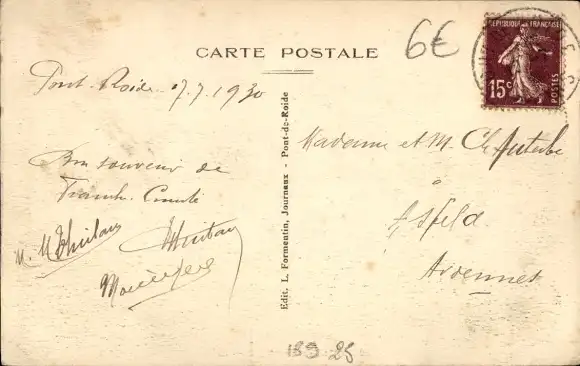 CARTE POSTALE
6€
REPUBLIQUE FRANÇAISE
15c
POSTES
Pont-Roide 17.7.1930
Bon souvenir de
Franche Comté
Edit. L. Formentin, Journaux - Pont-de-Roide
Madame et M. Ch
à
Asfeld
Ardennes
159 25